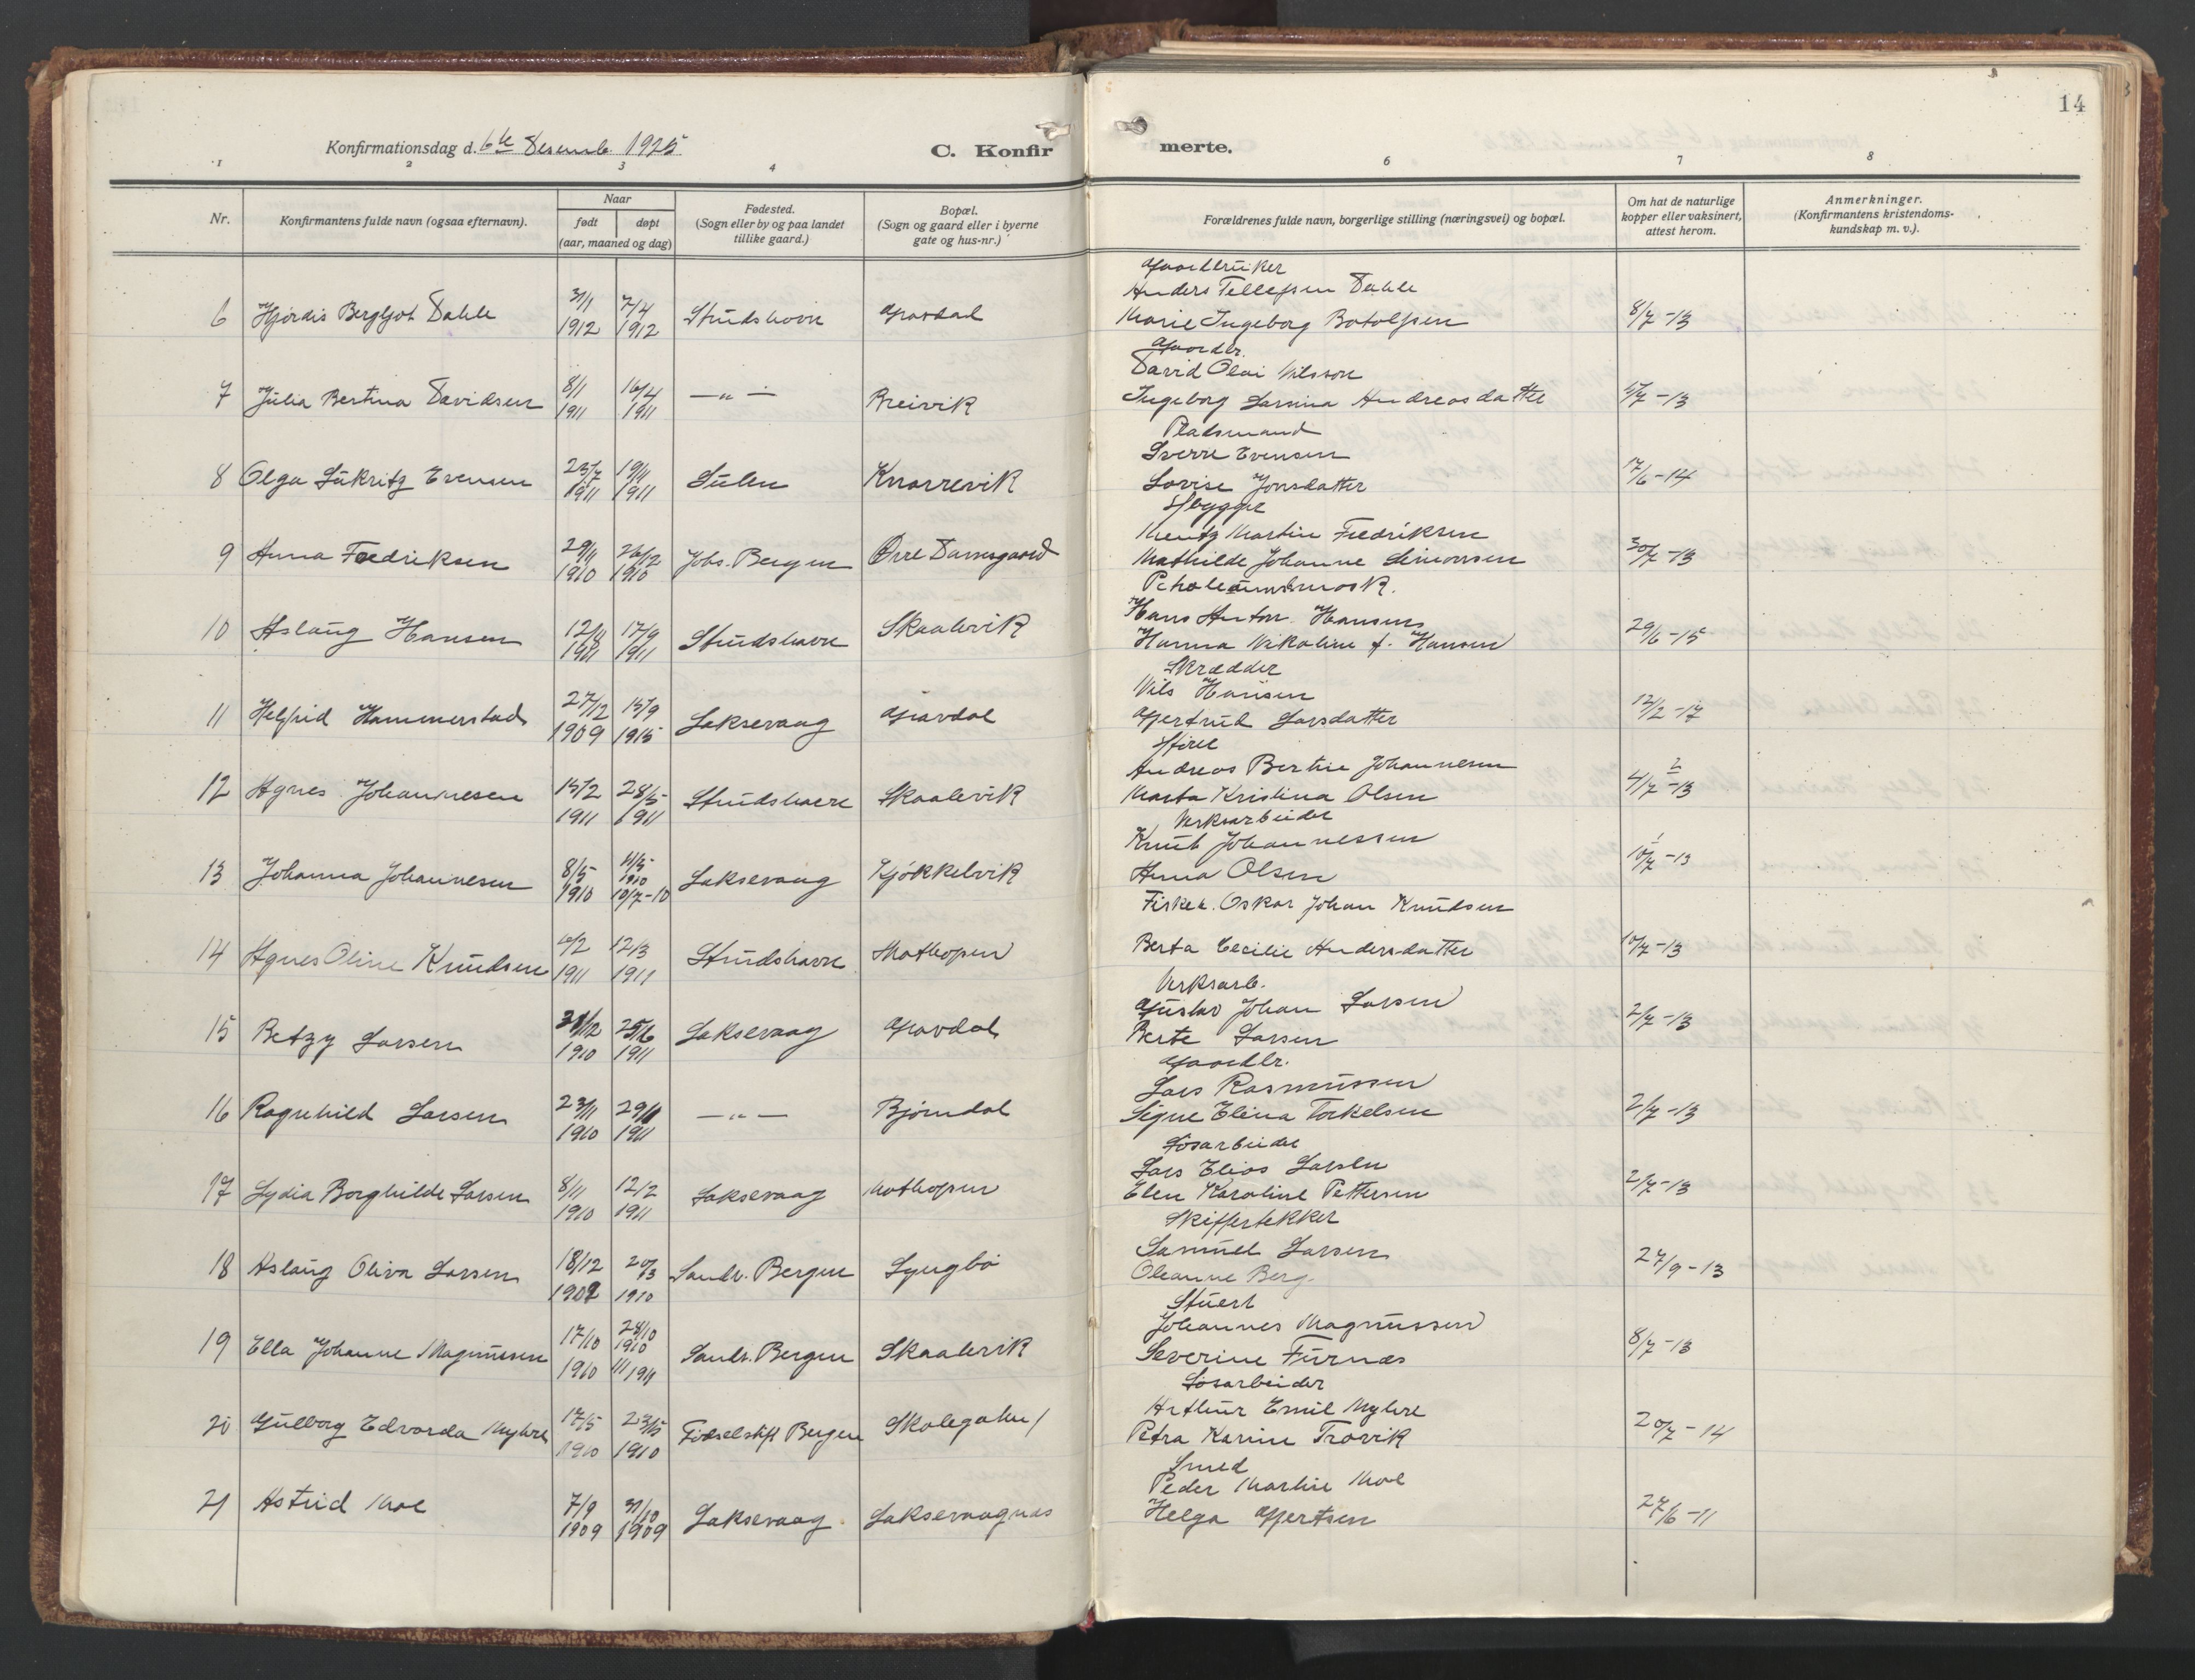 Konfirmationsdag d. 6te Desemb. 1925
C. Konfir
merte.
14
1 2 3 4 6 7 8
Nr.
Konfirmantens fulde navn (ogsaa efternavn).
Naar
født døpt
(aar, maaned og dag)
Fødested.
(Sogn eller by og paa landet
tillike gaard.)
Bopæl.
(Sogn og gaard eller i byerne
gate og hus-nr.)
Forældrenes fulde navn, borgerlige stilling (næringsvei) og bopæl.
Om hat de naturlige
kopper eller vaksinert,
attest herom.
Anmerkninger.
(Konfirmantens kristendoms-
kundskap m. v.).
Gaardbruker
Anders Tellefsen Dahle
6 Hjørdis Bergljot Dahle 31/1 1912 7/4 1912 Strudshavn Gravdal Marie Ingeborg Botolfsen 8/7-13
Gaardbr.
David Olai Nilsson
7 Julia Bertina Davidsen 8/1 1911 16/4 1911 —„— Breivik Ingeborg Larsina Andreasdatter 4/7-13
Pladsmand
Sverre Evensen
8 Olga Evensen 23/7 1911 19/11 1911 Sulen Knarrevik Lovise Jonsdatter 17/6-14
Mentz Martin Fredriksen
9 Anna Fredriksen 29/11 1910 26/12 1910 Johs. Bergen Øvre Damsgaard Mathilde Johanne Simonsen 30/7-13
Hans Anton Hansen
10 Aslaug Hansen 1911 17/9 1911 Strudshavn Skaalevik Hanna Nikoline f. Hansen 29/6-15
Skrædder
Nils Hansen
11 Helfrid Hammerstad 27/12 1909 15/9 1915 Laksevaag Gravdal Gjertrud Larsdatter 12/2-17
Andreas Bertin Johannesen
12 Agnes Johannesen 15/2 1911 28/5 1911 Strudshavn Skaalevik Marta Kristina Olsen 4/7-13
Verksarbeider
Knut Johannessen
13 Johanna Johannesen 8/5 1910 11/5 1910 10/7-10 Laksevaag Kjøkkelvik Anna Olsen 10/7-13
Fisker. Oskar Johan Knudsen
14 Agnes Oline Knudsen 4/2 1911 12/3 1911 Strudshavn Mathopen Berta Cecilie Andersdatter 10/7-13
Verksarb.
Gustav Johan Larsen
15 Betzy Larsen 31/12 1910 25/6 1911 Laksevaag Gravdal Berte Larsen 2/7-13
Gaardbr.
Lars Rasmussen
16 Ragnhild Larsen 23/11 1910 1911 —„— Bjørndal Signe Elina Torkelsen 2/7-13
Løsarbeider
Lars Elias Larsen
17 Lydia Borghilde Larsen 8/11 1910 12/2 1911 Laksevaag Mathopen Elen Karoline Pettersen 2/7-13
Skiffertekker
Samuel Larsen
18 Aslaug Oliva Larsen 18/12 1909 20/3 1910 Sandv. Bergen Lyngbø Oleanne Berg. 27/9-13
Stuert
Johannes Magnussen
19 Ella Johanne Magnussen 17/10 1910 28/10 1910 1/1 1911 Sandv. Bergen Skaalevik Severine Furnæs 8/7-13
Løsarbeider
Arthur Emil Myhre
20 Gulborg Edvarda Myhre 17/5 1910 23/5 1910 Fødselstift Bergen Skolegaten 1 Petra Karine Trovik 20/7-14
Smed
Peder Martin Moe
21 Astrid Moe 7/9 1909 31/10 1909 Laksevaag Laksevaagnæs Helga Gjertsen 27/6-11